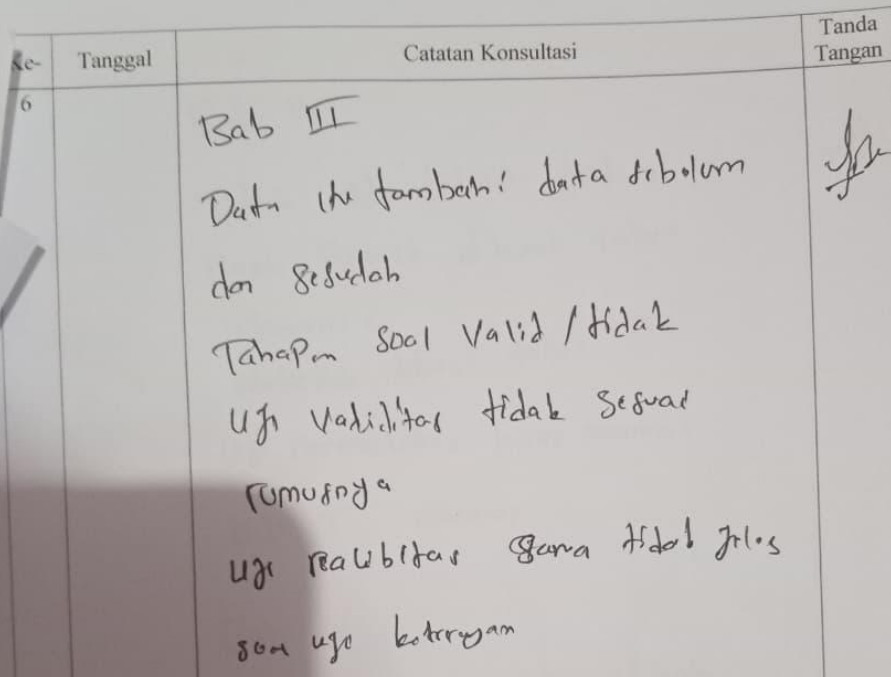 Ke- Tanggal Catatan Konsultasi Tanda Tangan
6
Bab III
Data tambah: data sebelum
dan sesudah
Tahapan soal Valid / tidak
Uji Validitas tidak sesuai
rumusnya
uji realibitas tidak jelas